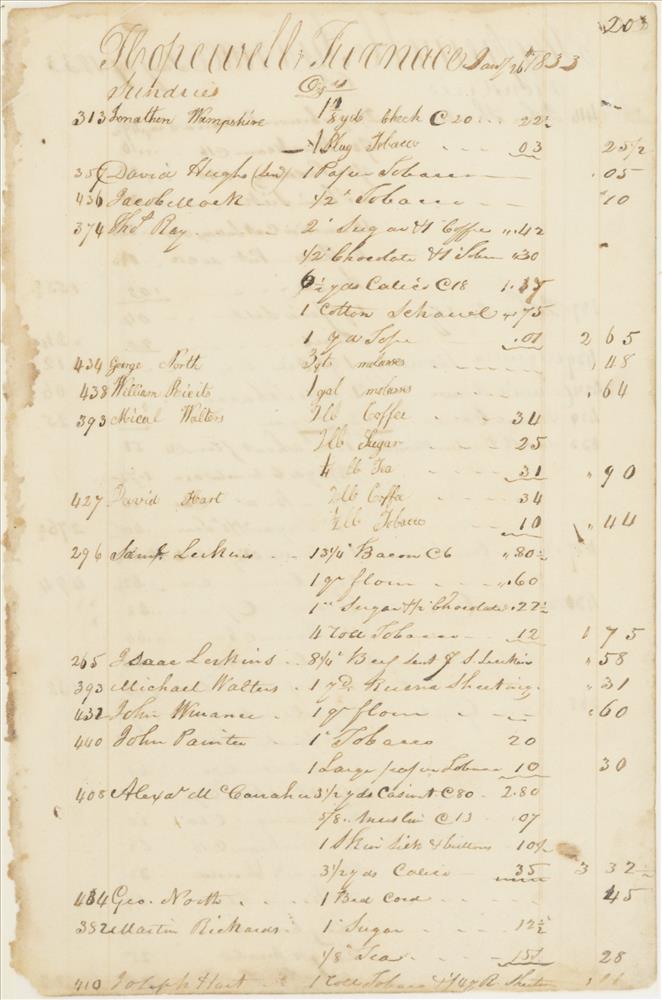 203
Hopewell Furnace Jany 26th 1833
Sundries Drs
313 Jonathen Wampshire 1 1/8 yds Check C 20 22½
1 Plug Tobacco 03 25½
357 David Hughs (Sen) 1 Paper Tobacco .05
436 Jacob Mock ½ " Tobacco 10
374 Thos Ray 2 " Sugar & 1 " Coffee .42
½ " Chocolate & 1 " .30
6½ yds Calico C 18 1.17
1 Cotton Schawel .75
1 .01 2 65
434 George North 3 qts molasses .48
438 William 1 gal molasses .64
393 Mical Walters 2 lb Coffee 34
2 lb Sugar 25
¼ lb Tea 31 .90
427 David Hart 2 lb Coffee 34
½ lb Tobacco 10 .44
296 Saml Lerkins 13¼ " Bacon C 6 .80½
1 qr flour .60
1 " Sugar & ½ " Chocolate .22½
4 Roll Tobacco 12 1 75
265 Isaac Lerkins 8¼ " Beef Sent J S. Lerkins .58
393 Michael Walters 1 yd Sheeting .31
432 John Winance 1 qr flour .60
440 John Painter 1 " Tobacco 20
1 Large paper Tobacco 10 30
408 Alexdr McCanahu 3½ yds Casint C 80 2.80
5/8 Muslin C 13 .07
1 Skin Silk & buttons 10½
3½ yds Calico 35 3 32½
434 Geo. North 1 Bed Cord 45
382 Martin Richards 1 " Sugar 12½
1/8 " Tea 15½ 28
410 Joseph Hart 1 Roll Tobacco &